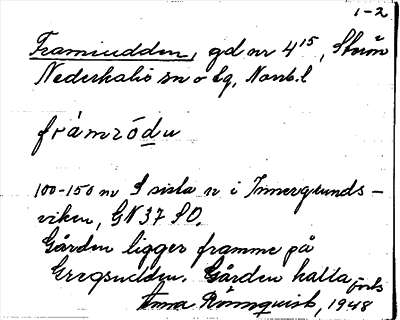 1-2
Framiudden, gd av 4¹⁵, Storön
Nederkalix sn o tg, Norrb. l
100-150 m S sista n i Innergrunds-
viken, GN 37 SO.
Gården ligger framme på
Gregsudden. Gården kalla förb
Rönnquist, 1948